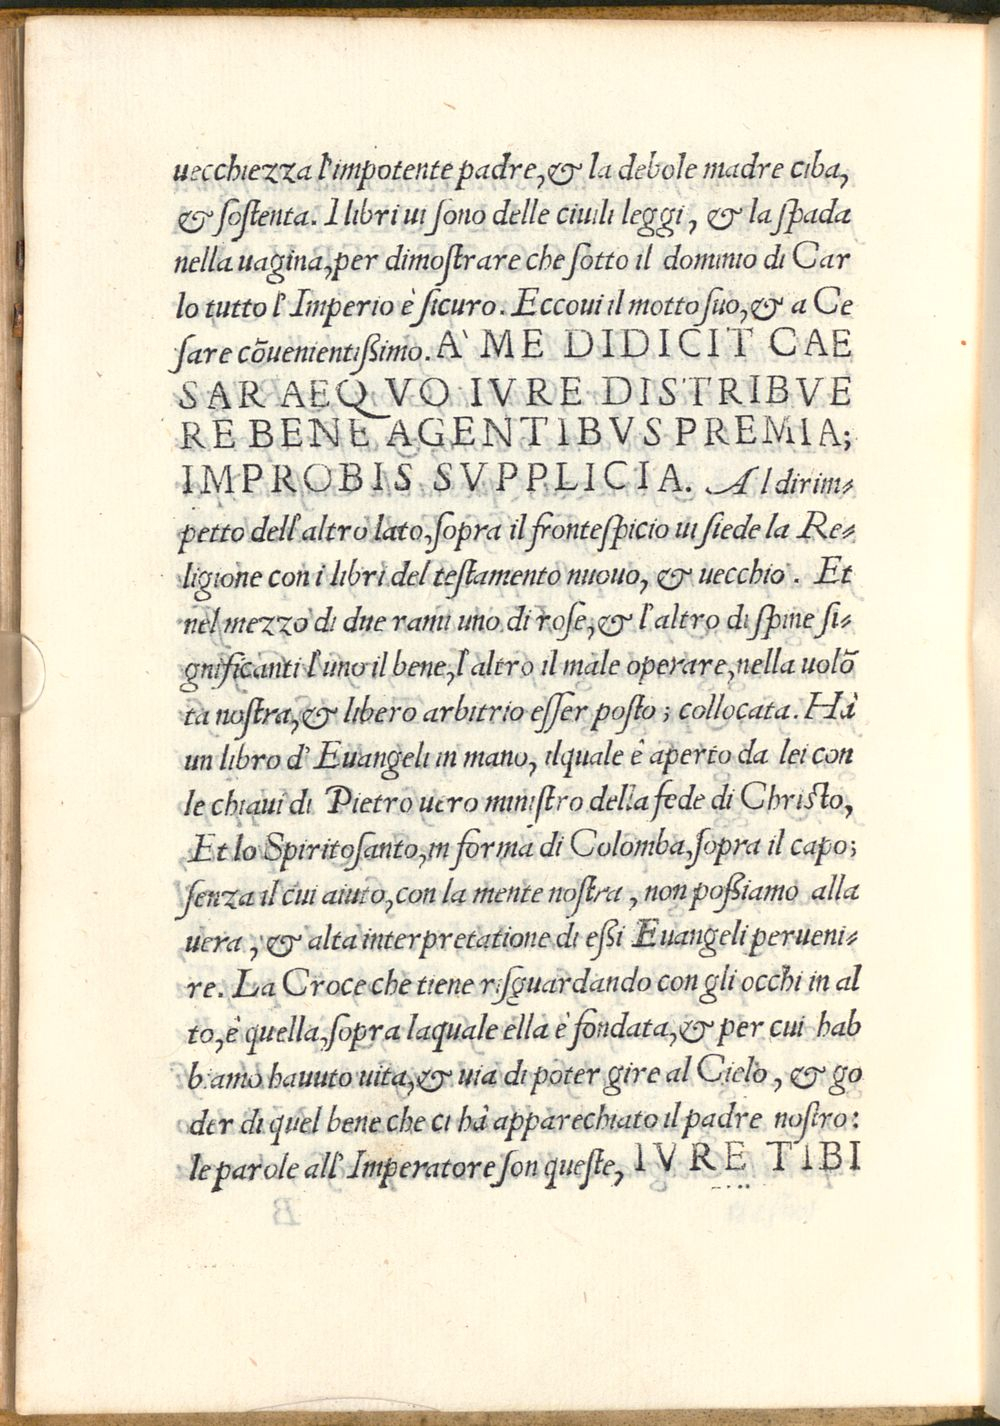 uecchiezza l'impotente padre,& la debole madre ciba,
& sostenta. I libri ui sono delle ciuili leggi, & la spada
nella uagina,per dimostrare che sotto il dominio di Car
lo tutto l' Imperio è sicuro. Eccoui il motto suo,& a Ce
sare cõuenientißimo. A' ME DIDICIT CAE
SAR AEQVO IVRE DISTRIBVE
RE BENE AGENTIBVS PREMIA;
IMPROBIS SVPPLICIA. Al dirim-
petto dell'altro lato,sopra il frontespicio ui siede la Re-
ligione con i libri del testamento nuouo, & uecchio. Et
nel mezzo di due rami uno di rose,& l'altro di spine si-
gnificanti l'uno il bene,l'altro il male operare,nella uolõ
ta nostra,& libero arbitrio esser posto; collocata. Hà
un libro d' Euangeli in mano, ilquale è aperto da lei con
le chiaui di Pietro uero ministro della fede di Christo,
Et lo Spirito santo,in forma di Colomba,sopra il capo;
senza il cui aiuto,con la mente nostra, non poßiamo alla
uera, & alta interpretatione di eßi Euangeli perueni-
re. La Croce che tiene risguardando con gli occhi in al
to,è quella,sopra laquale ella è fondata,& per cui hab
biamo hauuto uita,& uia di poter gire al Cielo, & go
der di quel bene che ci hà apparechiato il padre nostro:
le parole all' Imperatore son queste, IVRE TIBI